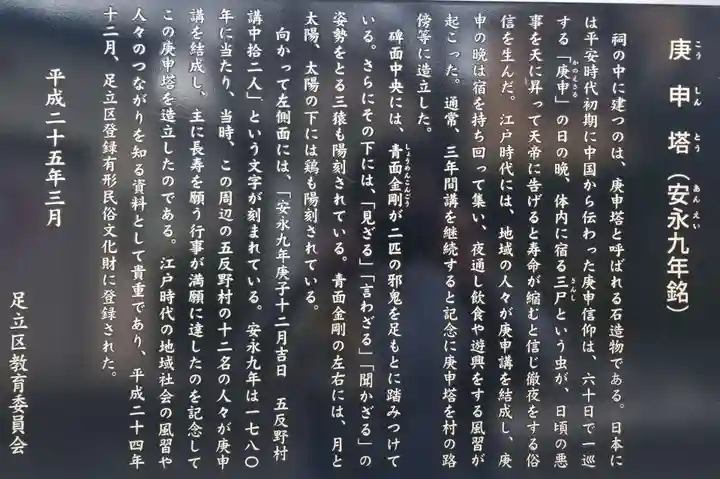 庚申塔（安永九年銘）
こうしんとう あんえい
祠の中に建つのは、庚申塔と呼ばれる石造物である。日本に
は平安時代初期に中国から伝わった庚申信仰は、六十日で一巡
する「庚申」の日の晩、体内に宿る三尸という虫が、日頃の悪
かのえさる さんし
事を天に昇って天帝に告げると寿命が縮むと信じ徹夜をする俗
信を生んだ。江戸時代には、地域の人々が庚申講を結成し、庚
申の晩は宿を持ち回って集い、夜通し飲食や遊興をする風習が
起こった。通常、三年間講を継続すると記念に庚申塔を村の路
傍等に造立した。
碑面中央には、青面金剛が二匹の邪鬼を足もとに踏みつけて
しょうめんこんごう
いる。さらにその下には、「見ざる」「言わざる」「聞かざる」の
姿勢をとる三猿も陽刻されている。青面金剛の左右には、月と
太陽、太陽の下には鶏も陽刻されている。
向かって左側面には、「安永九年庚子十二月吉日 五反野村
講中拾二人」という文字が刻まれている。安永九年は一七八〇
年に当たり、当時、この周辺の五反野村の十二名の人々が庚申
講を結成し、主に長寿を願う行事が満願に達したのを記念して
この庚申塔を造立したのである。江戸時代の地域社会の風習や
人々のつながりを知る資料として貴重であり、平成二十四年
十二月、足立区登録有形民俗文化財に登録された。
平成二十五年三月
足立区教育委員会